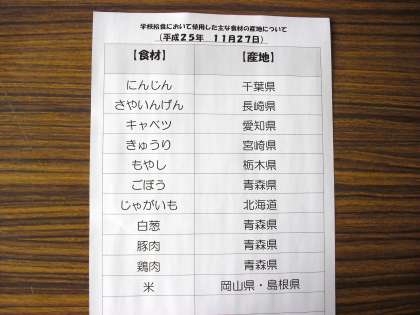 学校給食において使用した主な食材の産地について
(平成25年 11月27日)
【食材】 【産地】
にんじん 千葉県
さやいんげん 長崎県
キャベツ 愛知県
きゅうり 宮崎県
もやし 栃木県
ごぼう 青森県
じゃがいも 北海道
白葱 青森県
豚肉 青森県
鶏肉 青森県
米 岡山県・島根県